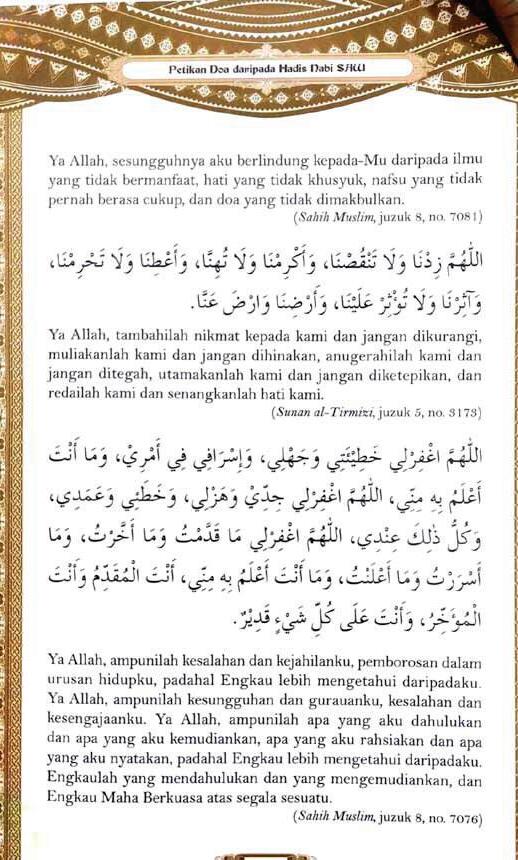 Petikan Doa daripada Hadis Nabi SAW
Ya Allah, sesungguhnya aku berlindung kepada-Mu daripada ilmu
yang tidak bermanfaat, hati yang tidak khusyuk, nafsu yang tidak
pernah berasa cukup, dan doa yang tidak dimakbulkan.
(Sahih Muslim, juzuk 8, no. 7081)
اللَّهُمَّ زِدْنَا وَلَا تَنْقُصْنَا، وَأَكْرِمْنَا وَلَا تُهِنَّا، وَأَعْطِنَا وَلَا تَحْرِمْنَا،
وَآثِرْنَا وَلَا تُؤْثِرْ عَلَيْنَا، وَأَرْضِنَا وَارْضَ عَنَّا.
Ya Allah, tambahilah nikmat kepada kami dan jangan dikurangi,
muliakanlah kami dan jangan dihinakan, anugerahilah kami dan
jangan ditegah, utamakanlah kami dan jangan diketepikan, dan
redailah kami dan senangkanlah hati kami.
(Sunan al-Tirmizi, juzuk 5, no. 3173)
اللَّهُمَّ اغْفِرْلِي خَطِيْئَتِي وَجَهْلِي، وَإِسْرَافِي فِي أَمْرِيْ، وَمَا أَنْتَ
أَعْلَمُ بِهِ مِنِّي، اللَّهُمَّ اغْفِرْلِي جِدِّيْ وَهَزْلِي، وَخَطَئِي وَعَمَدِي،
وَكُلُّ ذٰلِكَ عِنْدِي، اللَّهُمَّ اغْفِرْلِي مَا قَدَّمْتُ وَمَا أَخَّرْتُ، وَمَا
أَسْرَرْتُ وَمَا أَعْلَنْتُ، وَمَا أَنْتَ أَعْلَمُ بِهِ مِنِّي، أَنْتَ الْمُقَدِّمُ وَأَنْتَ
الْمُؤَخِّرُ، وَأَنْتَ عَلَى كُلِّ شَيْءٍ قَدِيْرٌ.
Ya Allah, ampunilah kesalahan dan kejahilanku, pemborosan dalam
urusan hidupku, padahal Engkau lebih mengetahui daripadaku.
Ya Allah, ampunilah kesungguhan dan gurauanku, kesalahan dan
kesengajaanku. Ya Allah, ampunilah apa yang aku dahulukan
dan apa yang aku kemudiankan, apa yang aku rahsiakan dan apa
yang aku nyatakan, padahal Engkau lebih mengetahui daripadaku.
Engkaulah yang mendahulukan dan yang mengemudiankan, dan
Engkau Maha Berkuasa atas segala sesuatu.
(Sahih Muslim, juzuk 8, no. 7076)